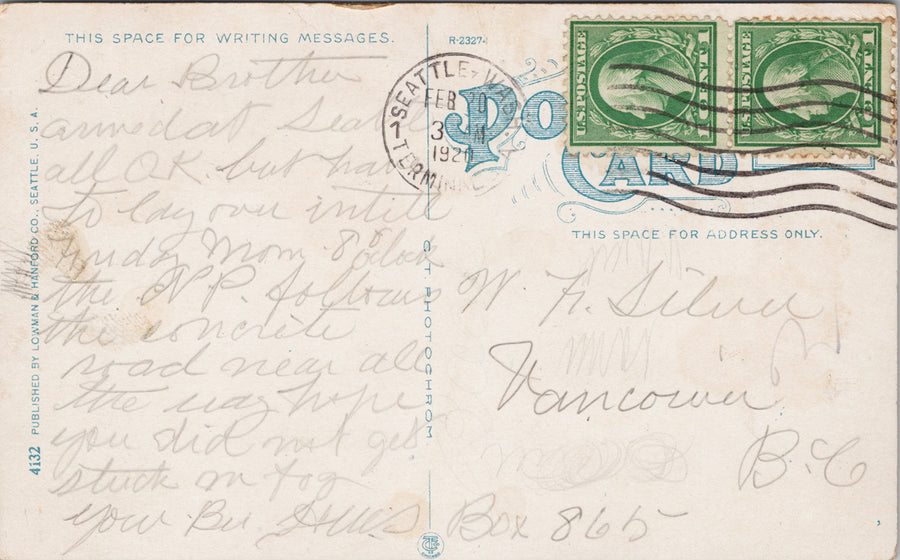 THIS SPACE FOR WRITING MESSAGES.
R-2327-1
Dear Brother
arived at Seattle
all OK. but have
to lay over intill
Mom 8 oclock
the N.P. follows
the concrete
road near all
the way hope
you did not get
stuck in fog
your Bro
4132 PUBLISHED BY LOWMAN & HANFORD CO., SEATTLE, U. S. A.
C.T. PHOTOCHROM
SEATTLE, WASH.
FEB 10
3
1920
TERMINAL
U.S. POSTAGE
1 CENT 1
U.S. POSTAGE
1 CENT 1
POST
CARD
THIS SPACE FOR ADDRESS ONLY.
W. H. Silver
Vancouver
B.C
Box 865